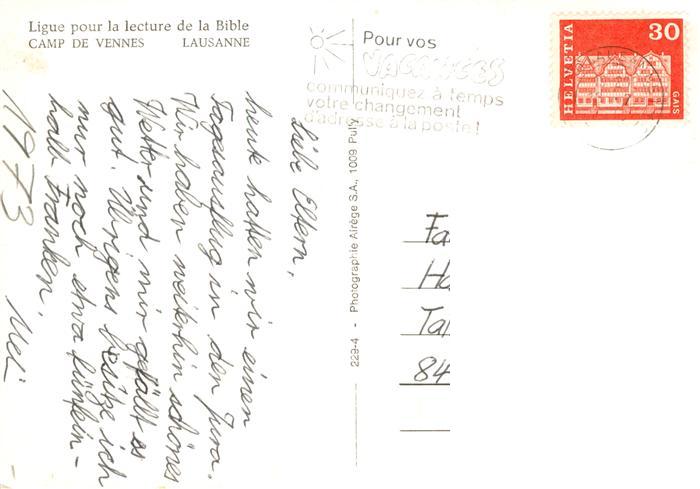 Ligue pour la lecture de la Bible
CAMP DE VENNES LAUSANNE
Pour vos
VACANCES
communiquez à temps
votre changement
d'adresse à la poste!
HELVETIA
30
GAIS
Liebe Eltern,
heute hatten wir einen
Tagesausflug in den Jura.
Wir haben weiterhin schönes
Wetter und mir gefällt es
gut. Übrigens besitze ich
nur noch etwa fünfein-
halb Franken.
Meli
1973
229-4 - Photographie Airège S.A., 1009 Pully
Fa
Ho
Tal
84